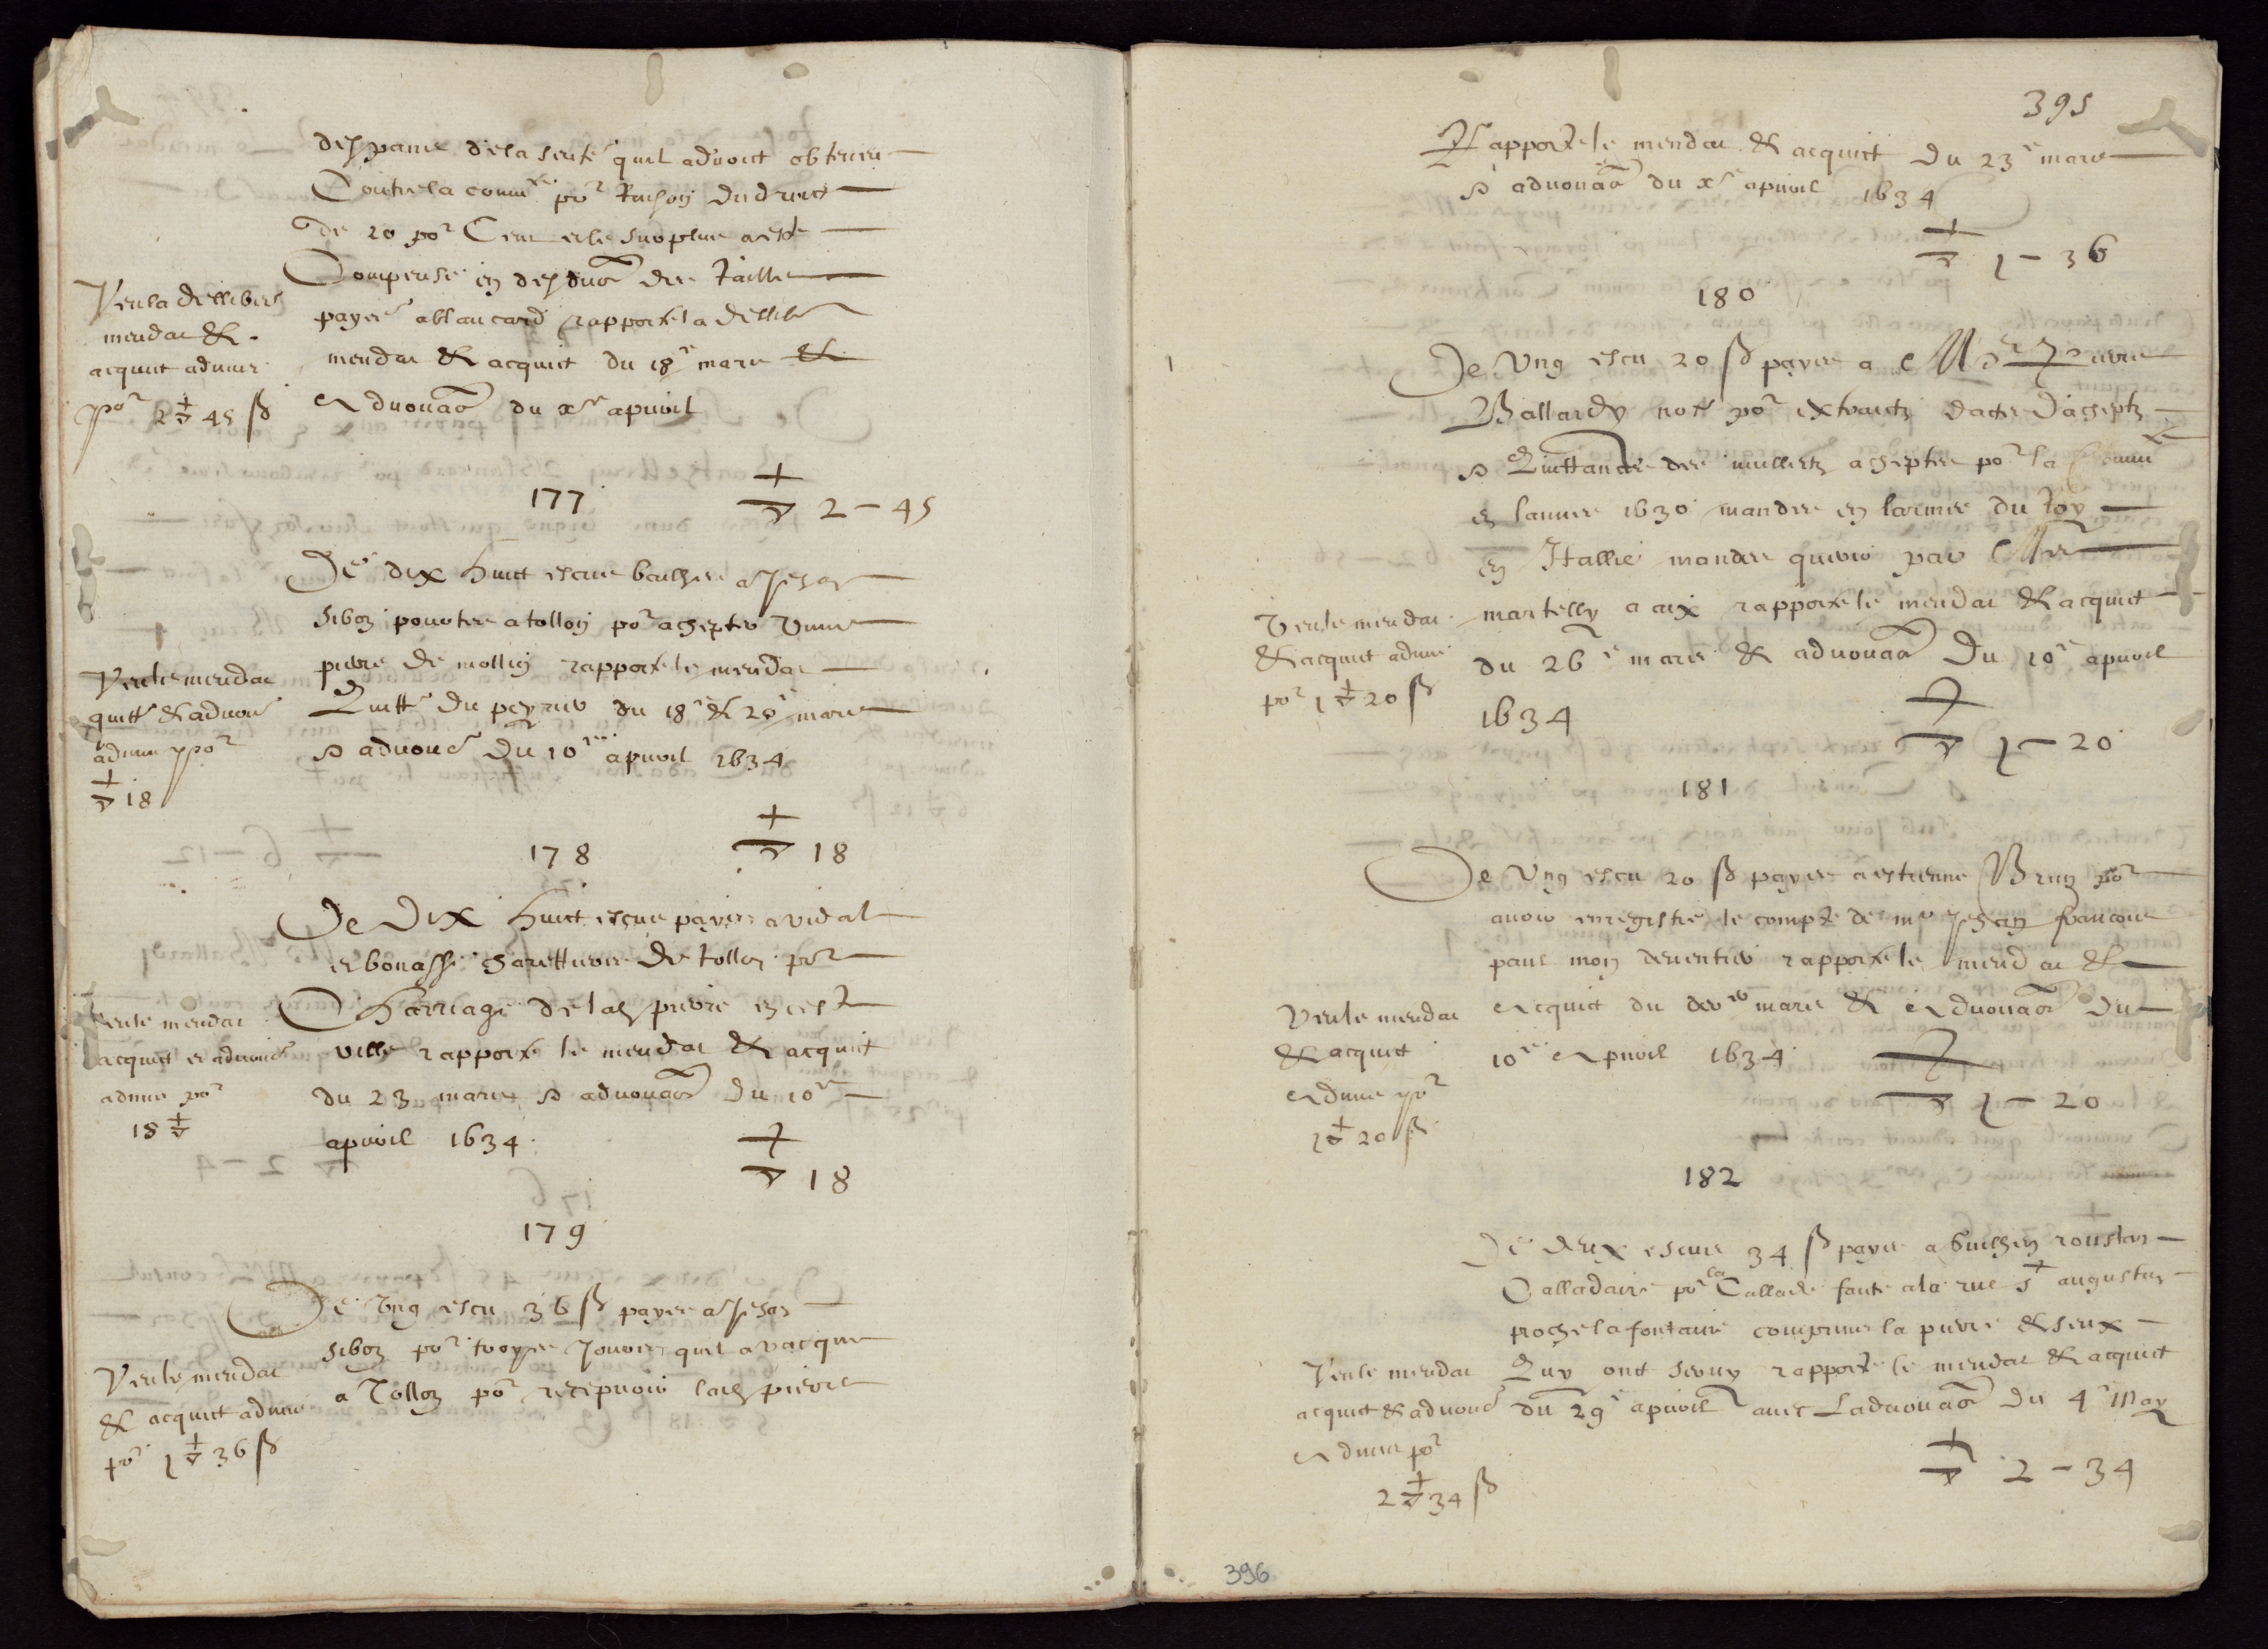 despans dela sente quil advoict obteneu
Contre la comm^té po^r Raison dudroict
de 20 po^r Cent et le surplus a esté
Compensé en desduon des tailles
payés a blancard rapporte la dellib^on
mendat & acquit du 18^e mars &
aduouaon du x^e apvril
Veu la dellibeon
mendat &
acquit admis
po^r 2 ▽ 45 ß
▽ 2 – 45
177
De dix huict escus bailhés a Jehan
sibon pouoter a tollon po^r achepter Vune
pierre de mollin rapporte le mendat
Quitt^e du peyrier du 18^e & 20^e mars
& aduoué du 10^me apvril 1634
Veu le mendat
quitt^e & aduoué
admis po^r
▽ 18
▽ 18
178
De Dix huict escus payés a vidal
et bonasse charettiers de tollon po^r
Charriage de lad pierre en ceste
ville rapporte le mendat & acquit
du 23 mars & aduouaon du 10^e
apvril 1634
Veu le mendat
acquit et aduoué
admis po^r
18 ▽
▽ 18
179
De Vng escu 36 ß payés a Jehan
sibon po^r troys Jours quil a vacqué
a Tollon po^r recepvoir lad pierre
Veu le mendat
& acquit admis
po^r 1 ▽ 36 ß
395
Rapporte le mendat & acquit du 23^e mars
& aduouaon du x^e apvril 1634
▽ 1 – 36
180
De Vng escu 20 ß payés a M^e
Ballardy not^e po^r extraictz dacte dacheptz
& Quittances des mulletz acheptés po^r la Comm^té
en lannee 1630 mandés en larmee du Roy
en Itallie mandés querir par M^e
martelly a aix rapporte le mendat & acquit
du 26^e mars & aduouaon Du 10^e apvril
1634
Veu le mendat
& acquit admis
po^r 1 ▽ 20 ß
▽ 1 – 20
181
De Vng escu 20 ß payés a estienne Brun po^r
avoir enregistré le compte de m^e Jehan francois
paul mon deventier rapporte le mendat &
acquit du mars & aduouaon du
10^e apvril 1634
Veu le mendat
& acquit
admis po^r
1 ▽ 20 ß
▽ 1 – 20
182
De deux escus 34 ß payés a Guilhen roustan
Calladaire po^r la Callade faute a la rue s^t augustin
proche la fontaine comprins la pierre & ceux
Quy ont servy rapporte le mendat & acquit
du 29^e apvril avec Laduouaon du 4^e May
Veu le mendat
acquit & aduoué
admis po^r
2 ▽ 34 ß
▽ 2 – 34
396